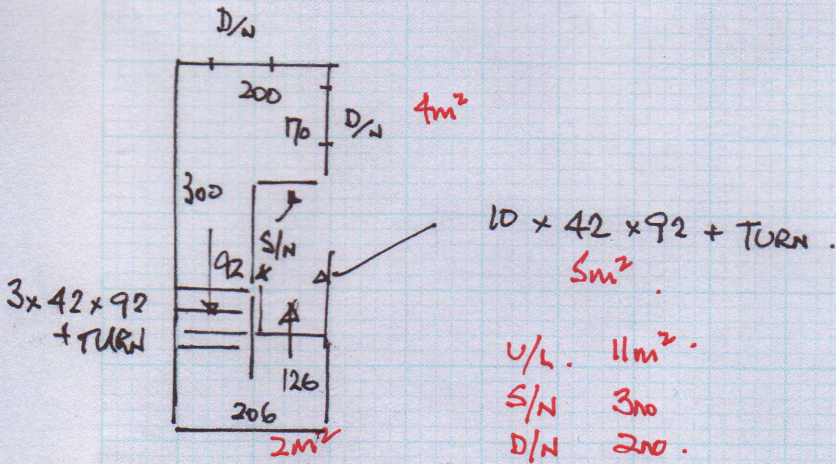 D/N
200
170 D/N
4m²
300
S/N
92
10 x 42 x 92 + TURN.
5m².
3 x 42 x 92
+ TURN
126
206
2m²
U/L. 11m².
S/N 3no
D/N 2no.